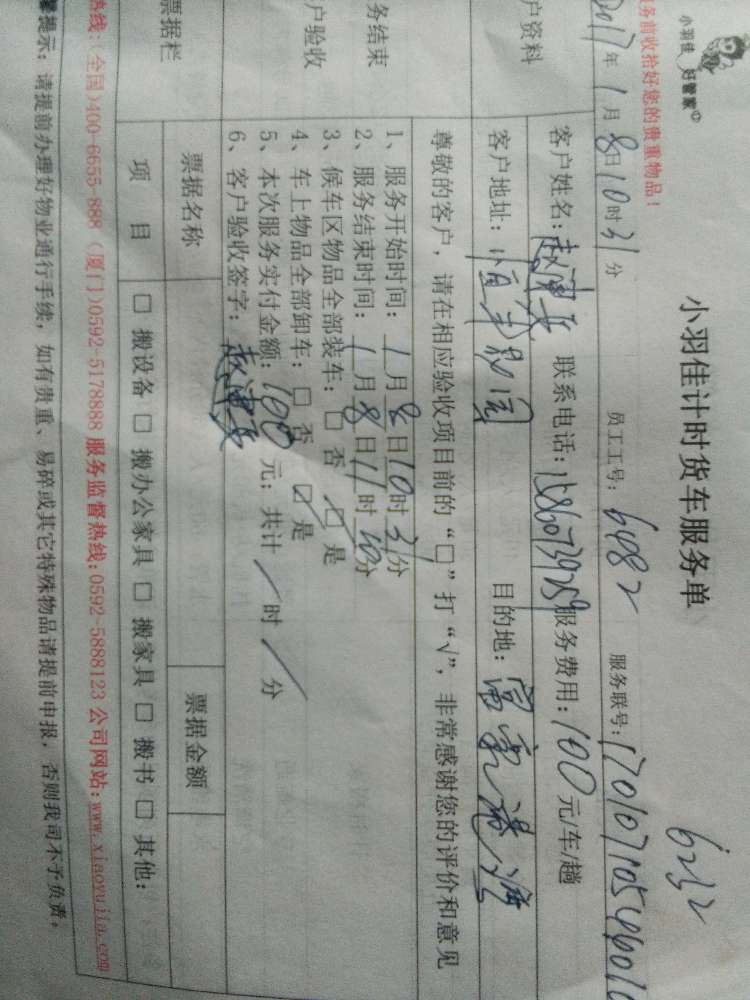 小羽佳 好管家
小羽佳计时货车服务单
6232
务前收拾好您的贵重物品!
2017年1月8日10时31分 员工工号: 6482 服务联号:
户资料
客户姓名: 联系电话: 服务费用: 100元/车/趟
客户地址: 目的地:
尊敬的客户, 请在相应验收项目前的“□”打“√”, 非常感谢您的评价和意见
务结束
户验收
1、服务开始时间: 1月8日10时31分
2、服务结束时间: 1月8日11时10分
3、候车区物品全部装车: □ 否 ☑ 是
4、车上物品全部卸车: □ 否 ☑ 是
5、本次服务实付金额: 100 元; 共计 / 时 / 分
6、客户验收签字:
票据栏
票据名称 票据金额
项 目 □ 搬设备 □ 搬办公家具 □ 搬家具 □ 搬书 □ 其他:
热线: (全国)400-6655-888 (厦门)0592-5178888 服务监督热线: 0592-5888123 公司网站: www.xiaoyujia.com
馨提示: 请提前办理好物业通行手续, 如有贵重、易碎或其它特殊物品请提前申报, 否则我司不予负责。